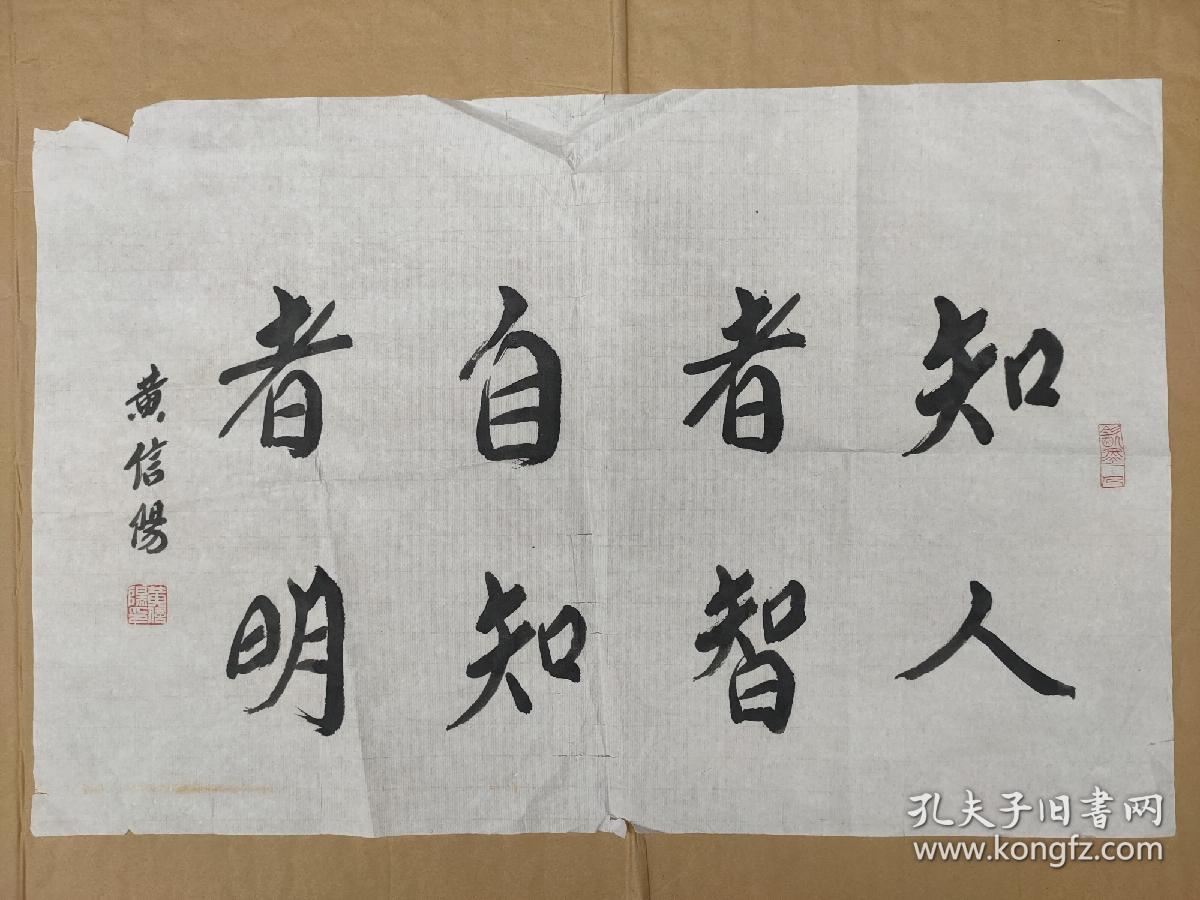 知人
者智
自知
者明
黄信陽
孔夫子旧書网
www.kongfz.com